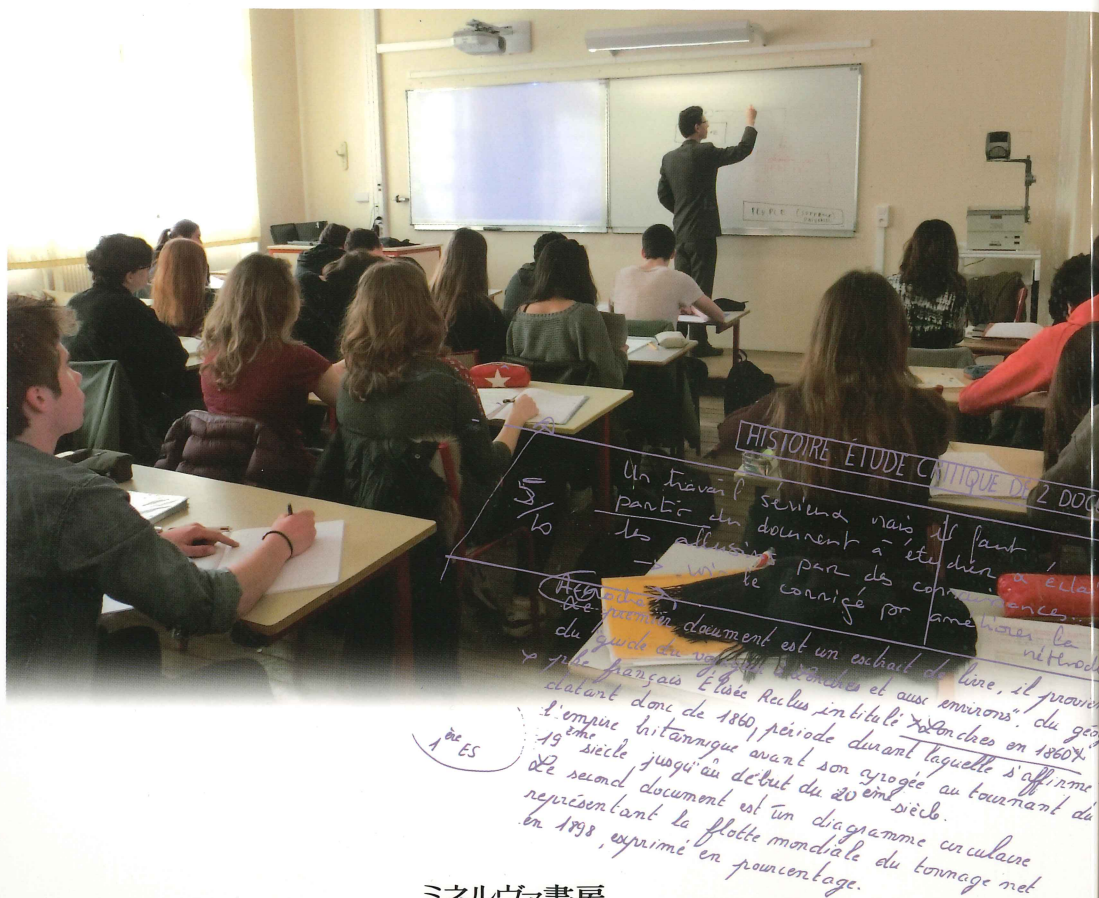 HISTOIRE ÉTUDE CRITIQUE DE 2 DOCU
5/10
Un travail sérieux mais il faut
partir du document à étudier à éclai
les allusions par des connaissances...
→ voir le corrigé pr améliorer la
méthode
Accroche
Le premier document est un extrait de livre, il provien
du guide du voyageur à Londres et aux environs". du géo
phe français Élisée Reclus intitulé "Londres en 1860"
datant donc de 1860, période durant laquelle s'affirme
l'empire britannique avant son apogée au tournant du
19ème siècle jusqu'au début du 20ème siècle.
Le second document est un diagramme circulaire
représentant la flotte mondiale du tonnage net
en 1898, exprimé en pourcentage.
1ère ES
ミネルヴァ書房